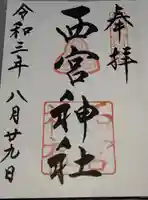 奉拝
西宮神社
令和三年
八月廿九日